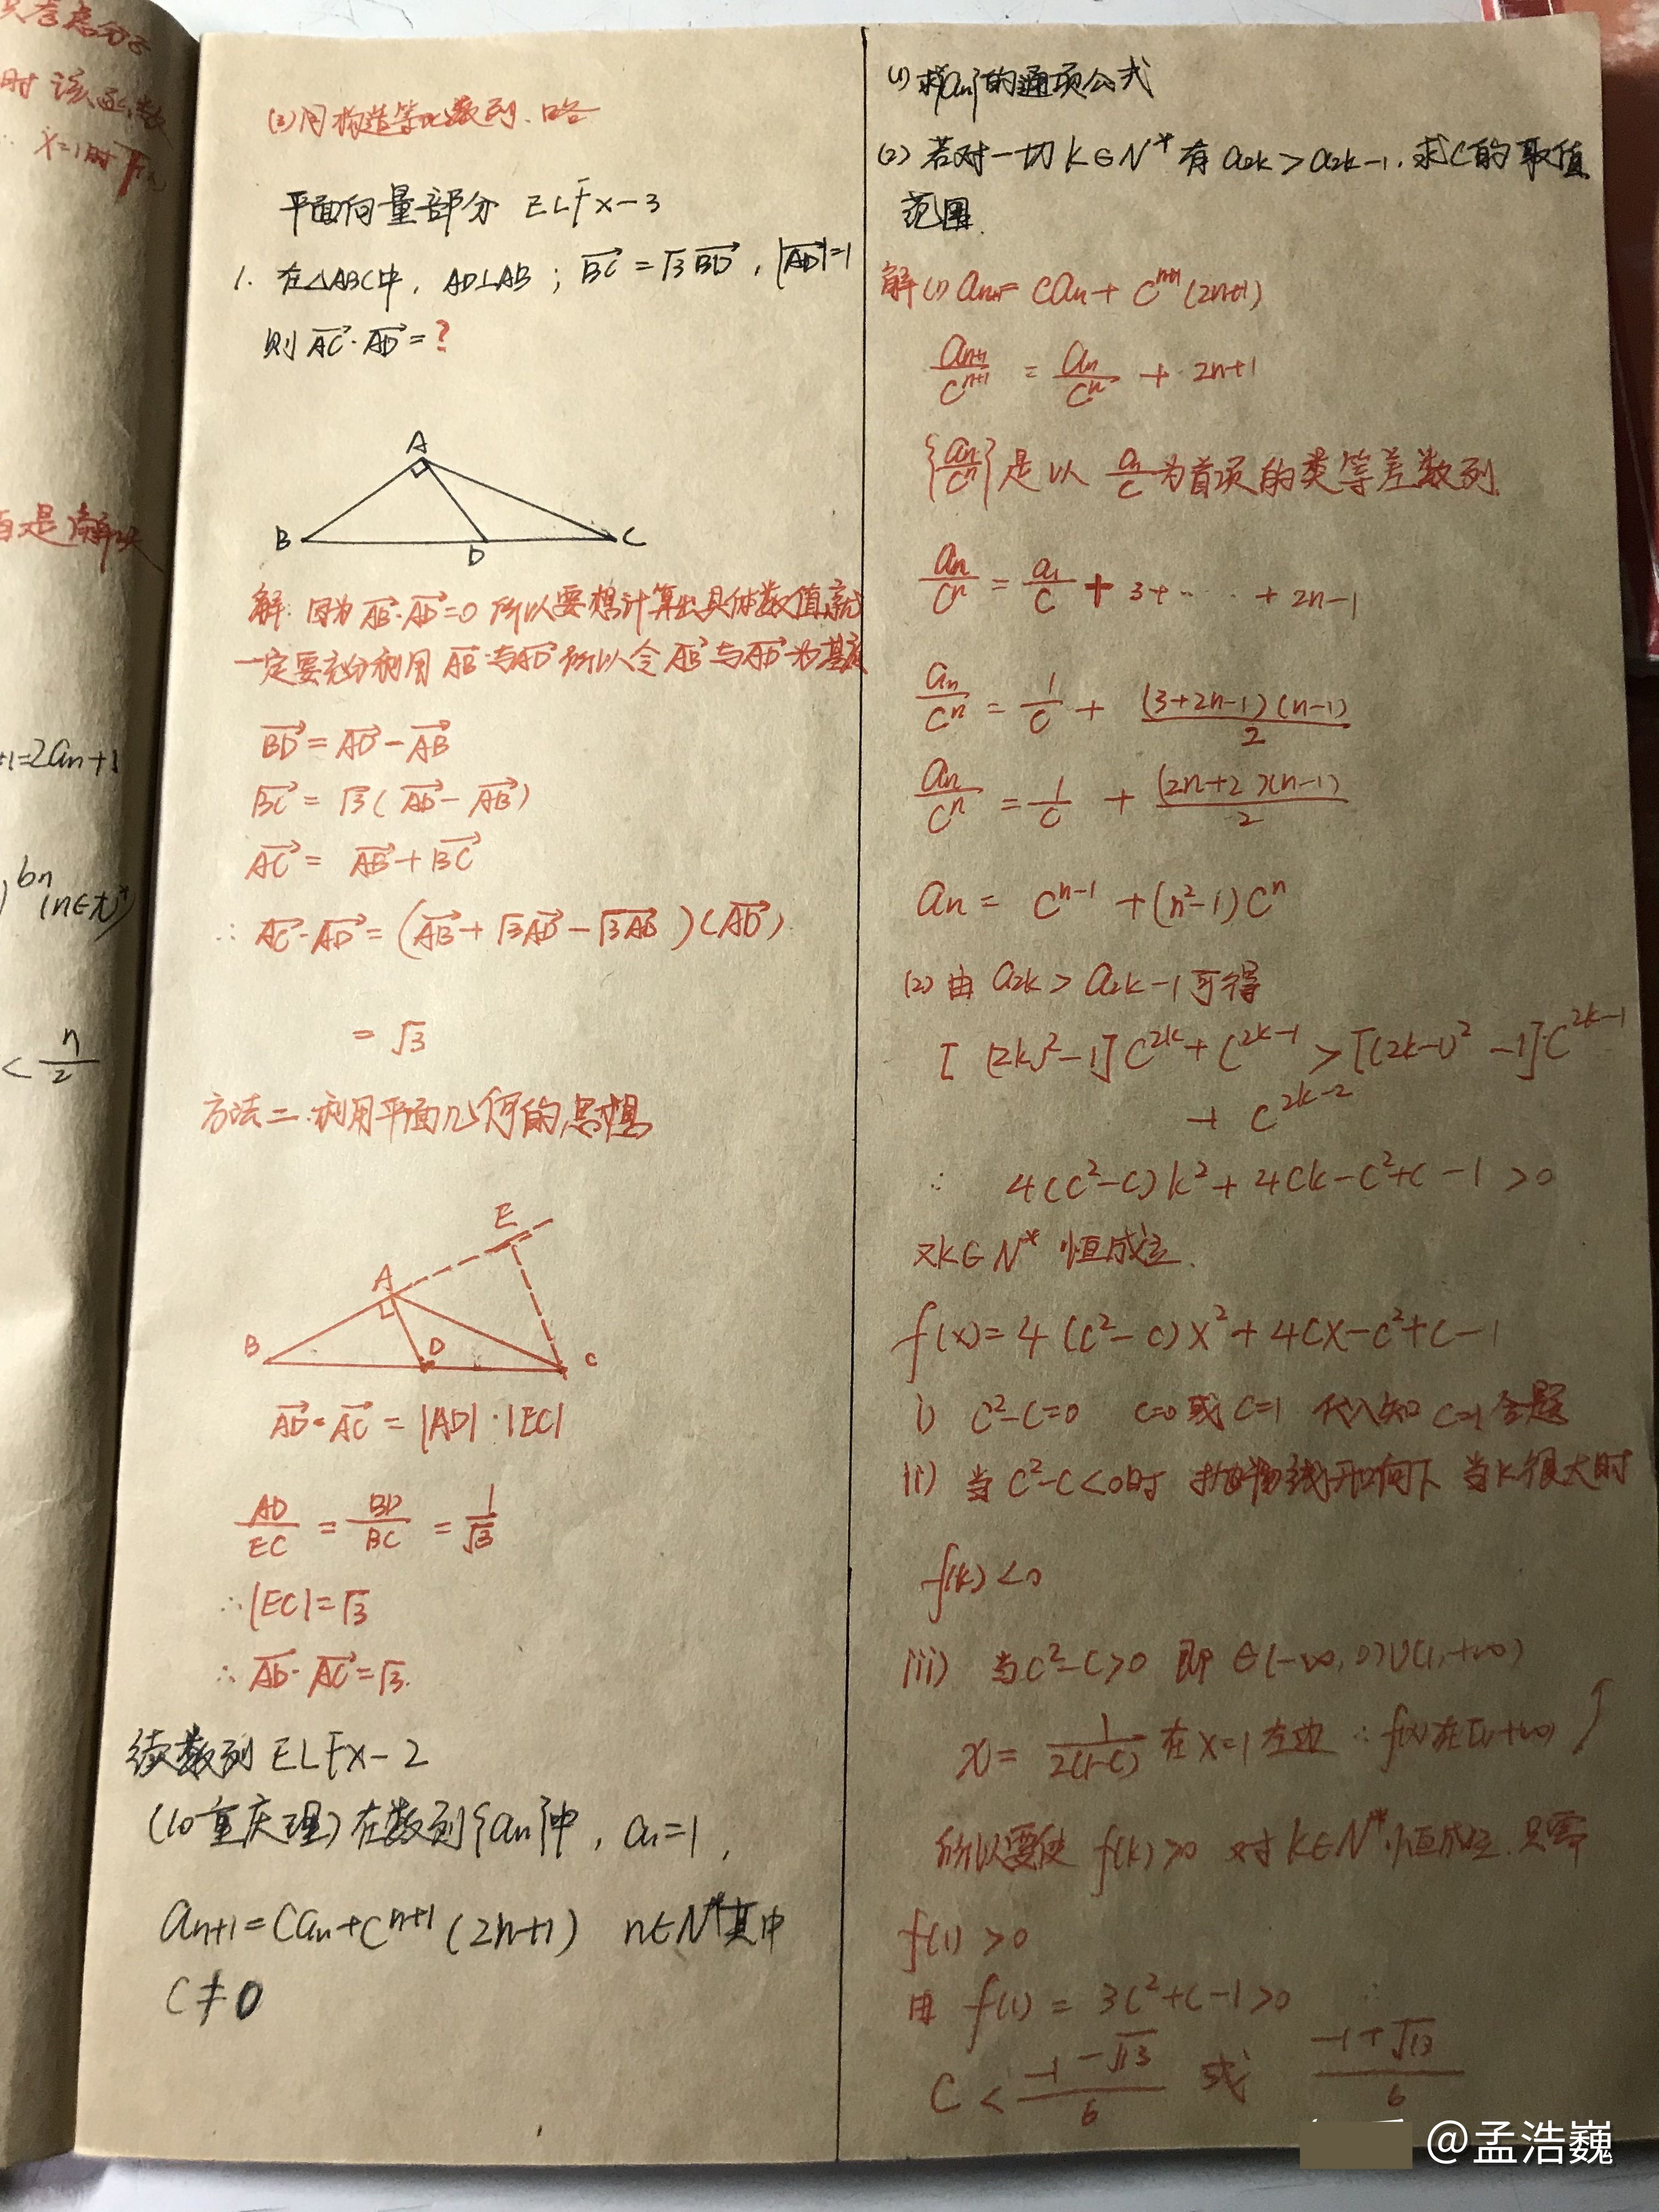 只考虑分子
时 该函数
x=1时
+1=2an+1
bn
(n∈N*)
< n/2
(3)用构造等比数列.略
平面向量部分 ELFx-3
1. 在△ABC中, AD⊥AB; BC→ = √3 BD→, |AD→|=1
则 AC→·AD→ = ?
A
B
D
C
解: 因为 AB→·AD→=0 所以要想计算出具体数值,就
一定要充分利用 AB→与AD→ 所以令 AB→与AD→为基底
BD→ = AD→ - AB→
BC→ = √3 (AD→ - AB→)
AC→ = AB→ + BC→
∴ AC→·AD→ = (AB→ + √3AD→ - √3AB→)(AD→)
= √3
方法二:利用平面几何的思想
E
A
B
D
C
AD→·AC→ = |AD|·|EC|
AD/EC = BD/BC = 1/√3
∴ |EC| = √3
∴ AD→·AC→ = √3.
续数列 ELFx-2
(10重庆理)在数列{an}中, a1=1,
an+1 = Can + C^(n+1) (2n+1) n∈N*其中
C≠0
(1) 求{an}的通项公式
(2) 若对一切 k∈N* 有 a2k > a2k-1. 求C的取值
范围.
解(1) an+1 = Can + C^(n+1) (2n+1)
an+1/C^(n+1) = an/C^n + 2n+1
{an/C^n} 是以 a1/C 为首项的类等差数列.
an/C^n = a1/C + 3+ ··· + 2n-1
an/C^n = 1/C + (3+2n-1)(n-1)/2
an/C^n = 1/C + (2n+2)(n-1)/2
an = C^(n-1) + (n²-1)C^n
(2) 由 a2k > a2k-1 可得
[(2k)²-1]C^(2k) + C^(2k-1) > [(2k-1)²-1]C^(2k-1)
+ C^(2k-2)
∴ 4(C²-C)k² + 4Ck - C²+C-1 > 0
又k∈N* 恒成立.
f(x) = 4(C²-C)x² + 4Cx - C²+C-1
i) C²-C=0 C=0 或 C=1 代入知 C=1合题
ii) 当 C²-C<0时 抛物线开口向下 当k很大时
f(k)<0
iii) 当C²-C>0 即 ∈(-∞,0)∪(1,+∞)
x = 1/2(1-C) 在 x=1左边 ∴ f(x)在[1,+∞) ↗
所以要使 f(k)>0 对 k∈N*恒成立.只需
f(1)>0
由 f(1) = 3C²+C-1>0 ∴
C < (-1-√13)/6 或 (-1+√13)/6
@孟浩巍